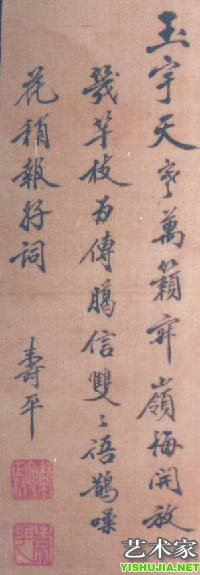 玉宇天萬籟嶺梅開放
幾枝为傳臈信雙〻語鵲噪
花稍報好詞
壽平
艺术家
YISHUJIA.NET